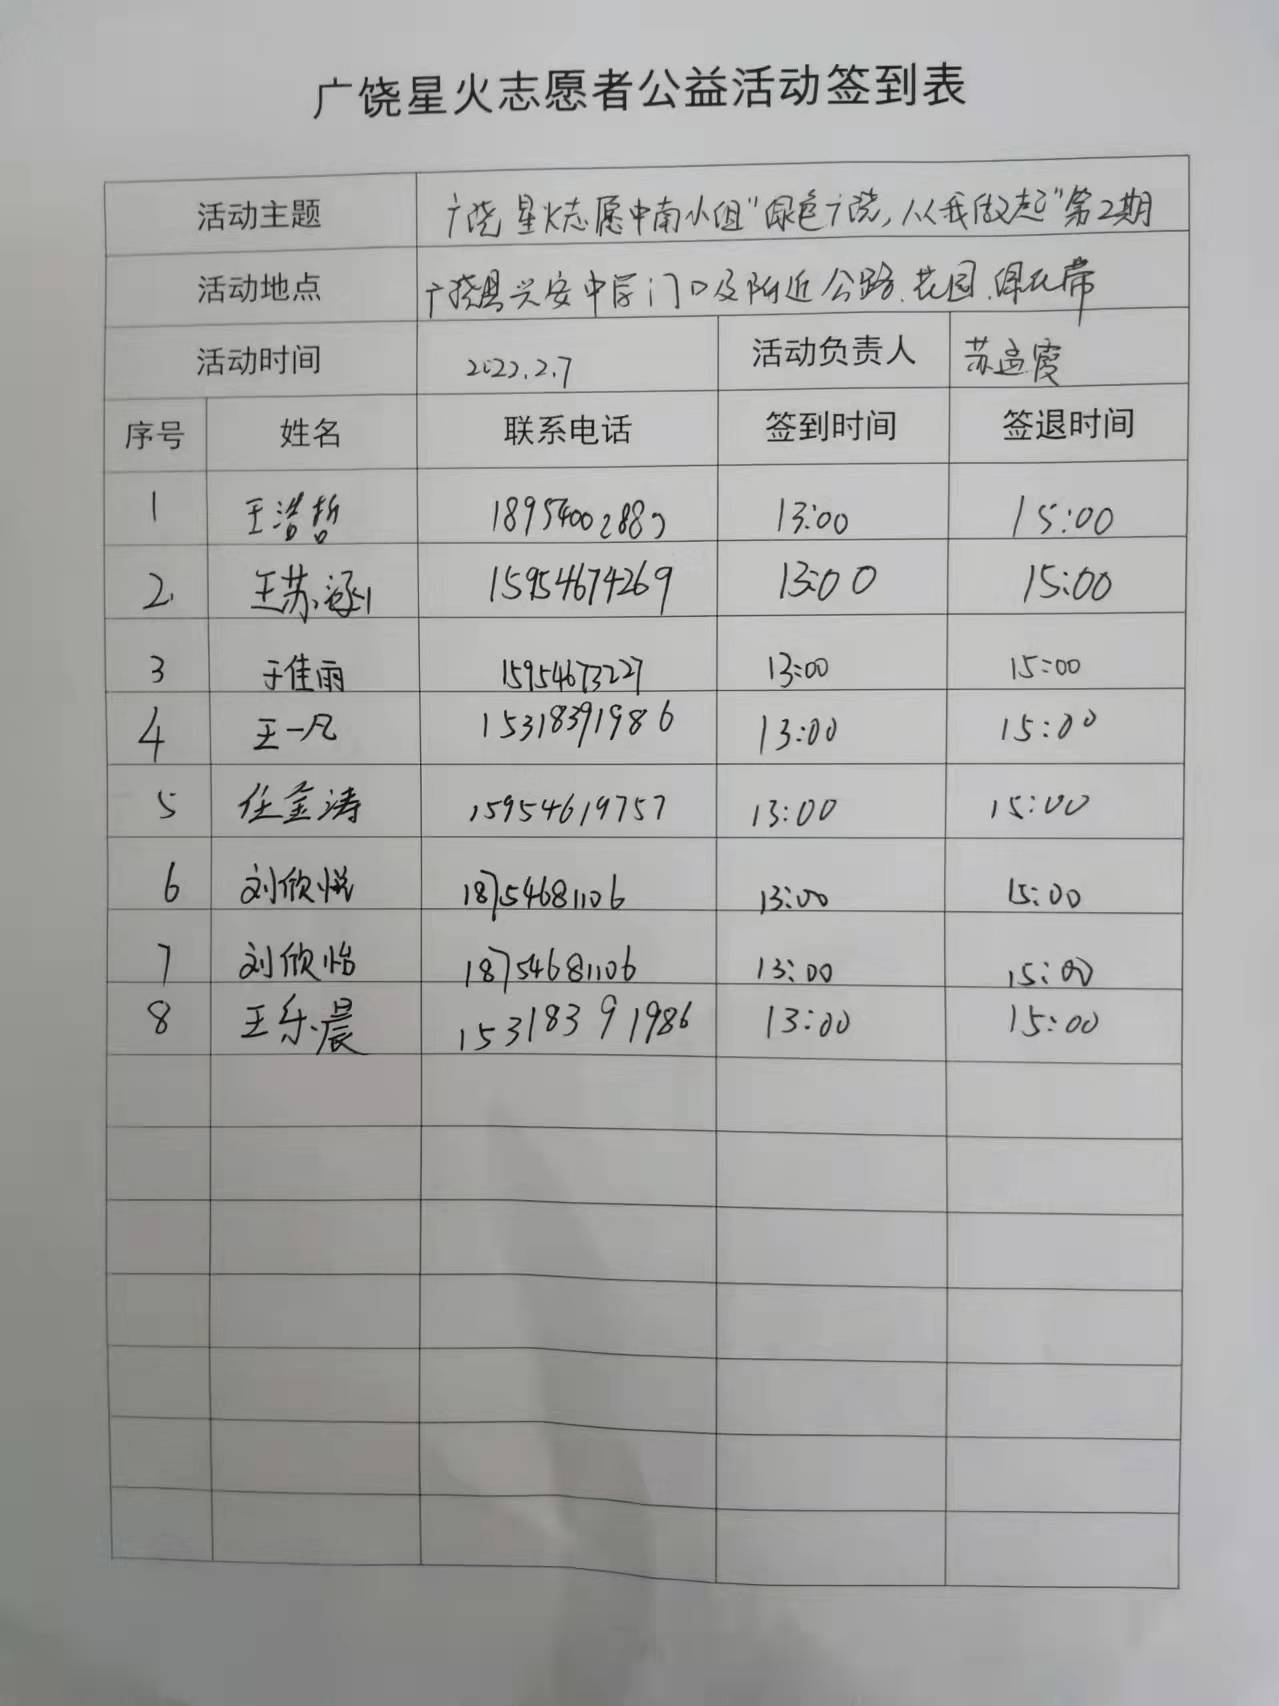 广饶星火志愿者公益活动签到表
活动主题 广饶星火志愿中南小组"绿色广饶,从我做起"第2期
活动地点 广饶县兴安中学门口及附近公路、花园、绿化带
活动时间 2022.2.7 活动负责人 苏孟霞
序号 姓名 联系电话 签到时间 签退时间
1 王浩哲 18954002889 13:00 15:00
2 王苏涵 15954674269 13:00 15:00
3 于佳雨 15954673227 13:00 15:00
4 王一凡 15318391986 13:00 15:00
5 任金涛 15954619757 13:00 15:00
6 刘欣悦 18754681106 13:00 15:00
7 刘欣怡 18754681106 13:00 15:00
8 王乐晨 15318391986 13:00 15:00